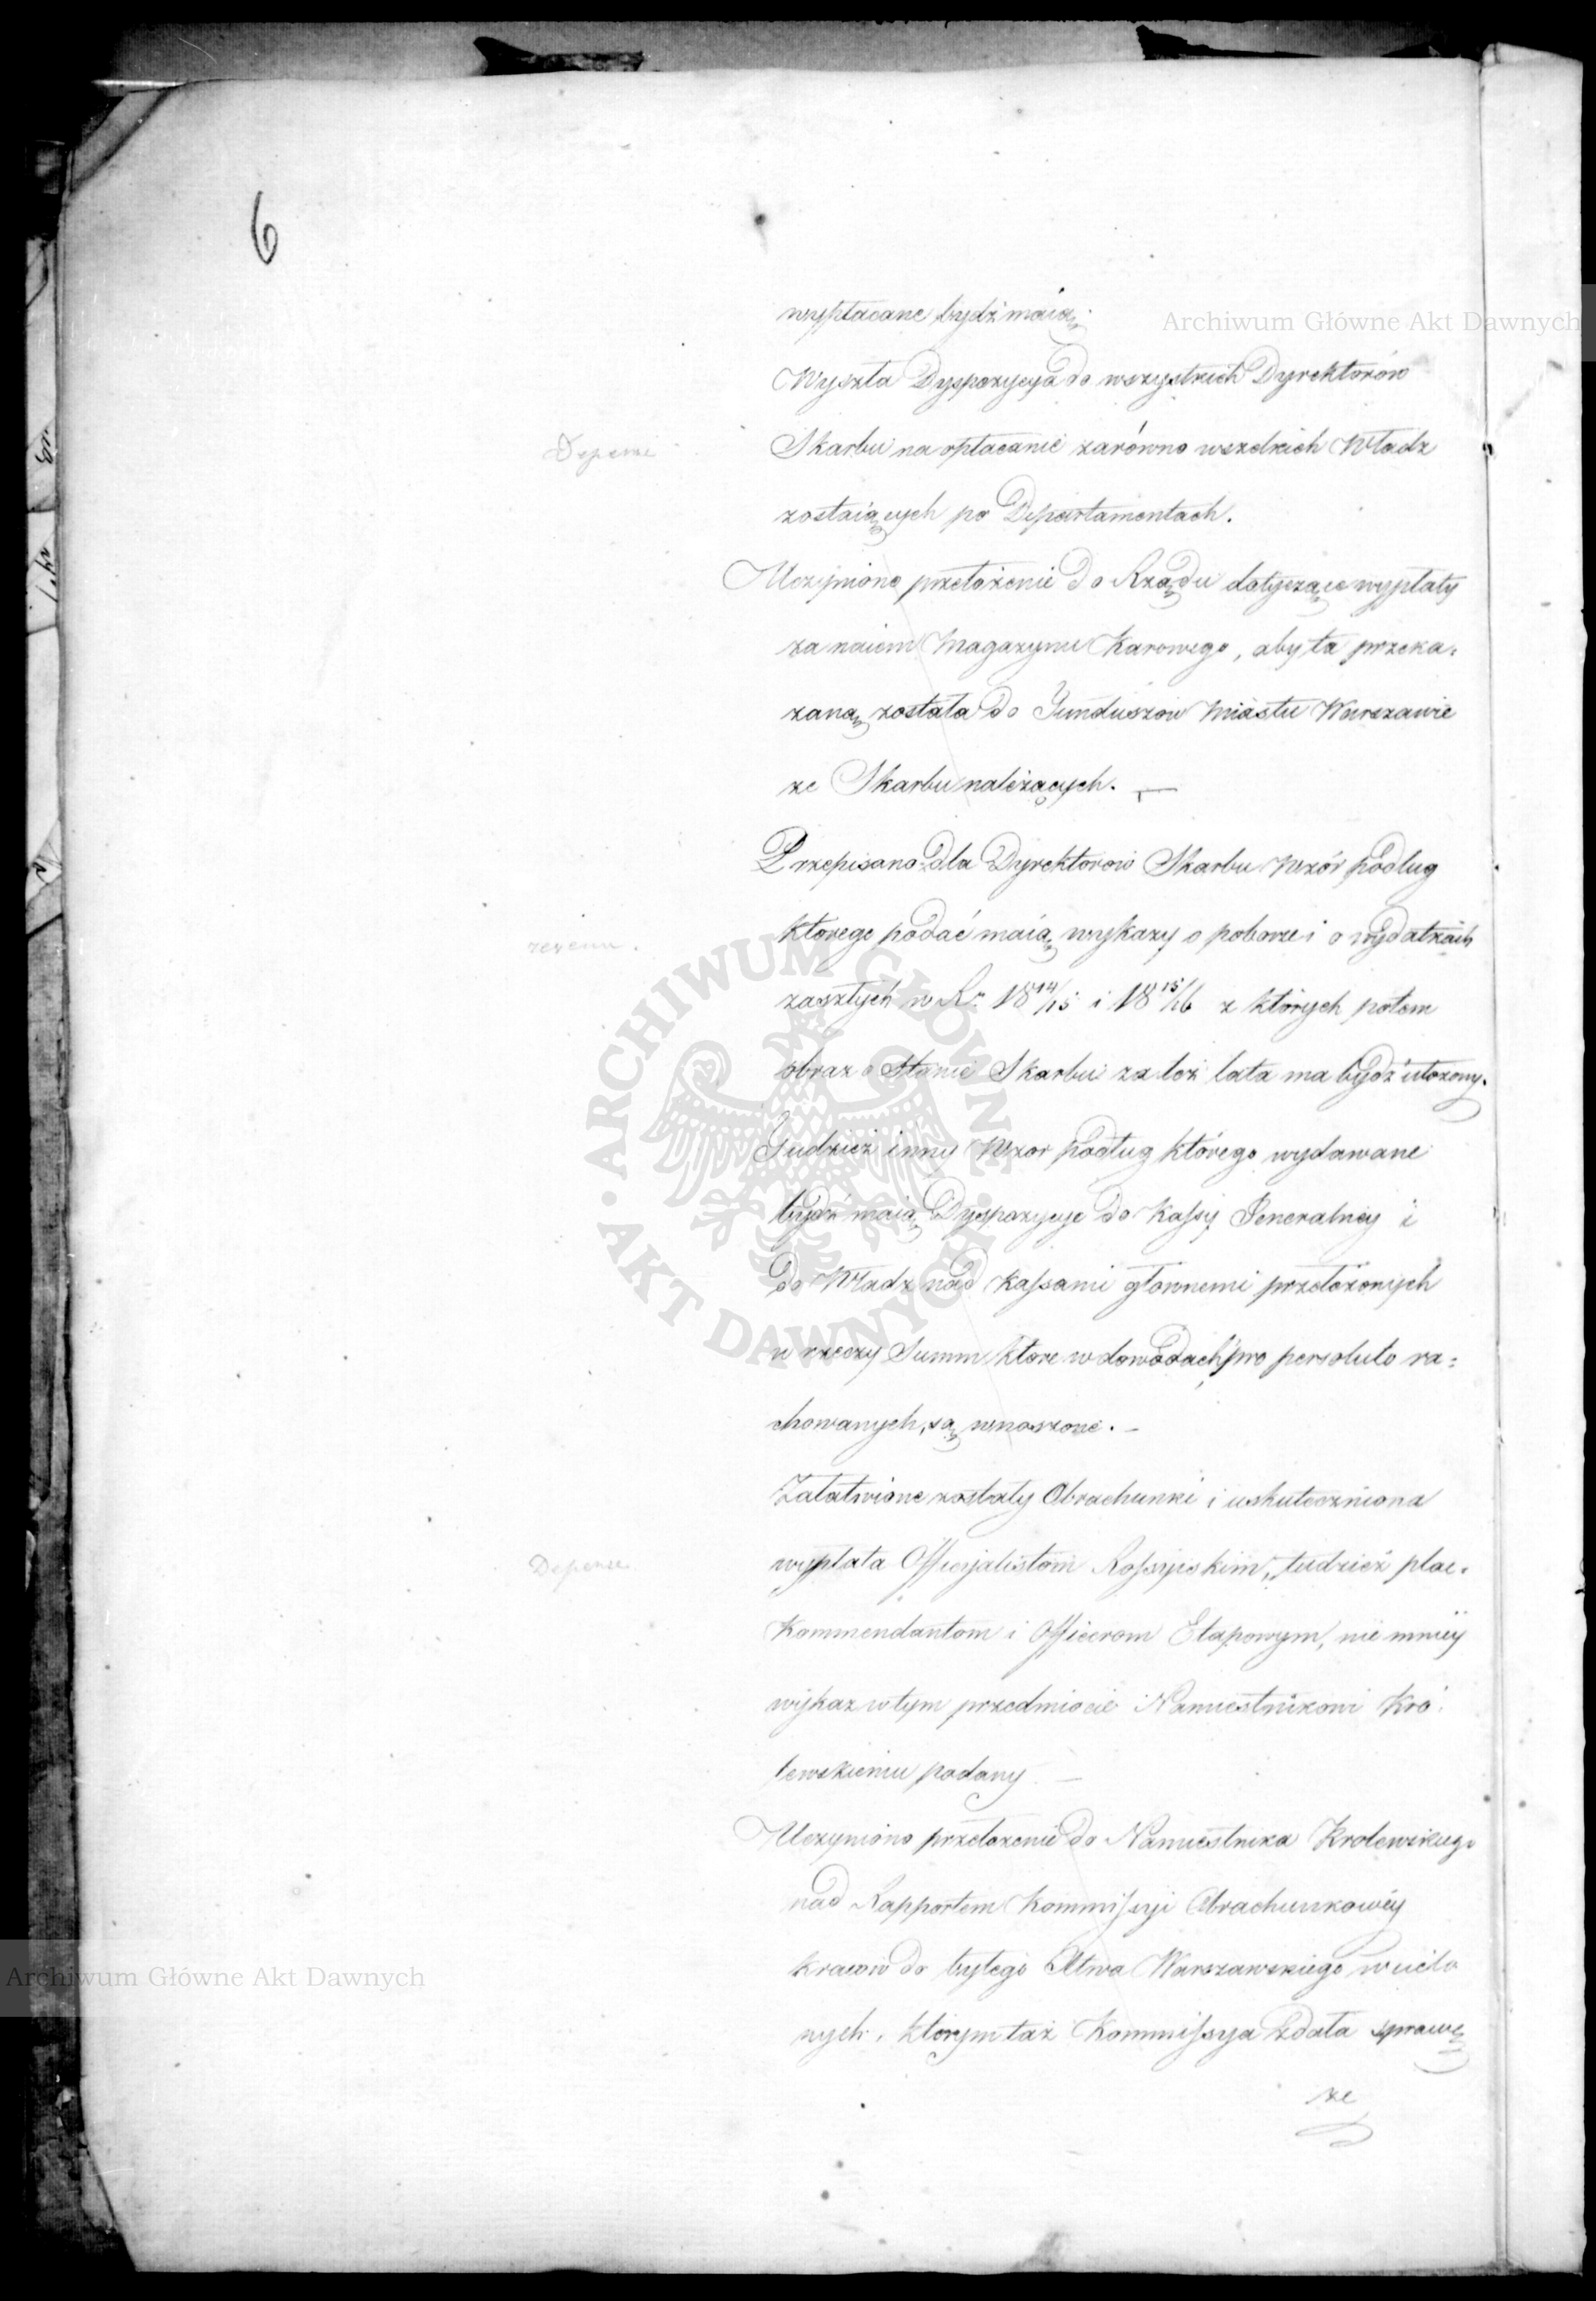 6
wypłacane bydź maią.
Archiwum Główne Akt Dawnych
Wyszła Dyspozycya do wszystkich Dyrektorów
Depense
Skarbu na opłacanie zarówno wszelkich Władz
zostaiących po Departamentach.
Uczyniono przełożenie do Rządu dotyczące wypłaty
za naiem Magazynu Karowego, aby ta przeka=
zaną została do Funduszów Miastu Warszawie
ze Skarbu należących. —
Przepisano dla Dyrektorow Skarbu Wzór podług
revenu.
ktorego podać maią wykazy o poborze i o wydatkach
zaszłych w R. 18 14/15 i 18 15/16 z których potem
obraz o Stanie Skarbu za też lata ma bydź ułożony.
Tudzież inny Wzor podług którego wydawane
bydź maią Dyspozycye do Kassy Jeneralney i
do Władz nad Kassami głownemi przełożonych
w rzeczy Summ ktore w dowodach pro persoluto ra=
chowanych, są wnoszone. —
Załatwione zostały Obrachunki i uskuteczniona
Depense
wypłata Officyalistom Rossyiskim, tudzież plac=
Kommendantom i Officerom Etapowym, nie mniey
wykaz w tym przedmiocie Namiestnikowi Kró=
lewskiemu podany —
Uczyniono przełożenie do Namiestnika Krolewskiego
nad Rapportem Kommissyi Obrachunkowéy
Kraiow do byłego Xstwa Warszawskiego wcielo
Archiwum Główne Akt Dawnych
nych, ktorym taż Kommissya zdała sprawę
ze
ARCHIWUM GŁÓWNE • AKT DAWNYCH •